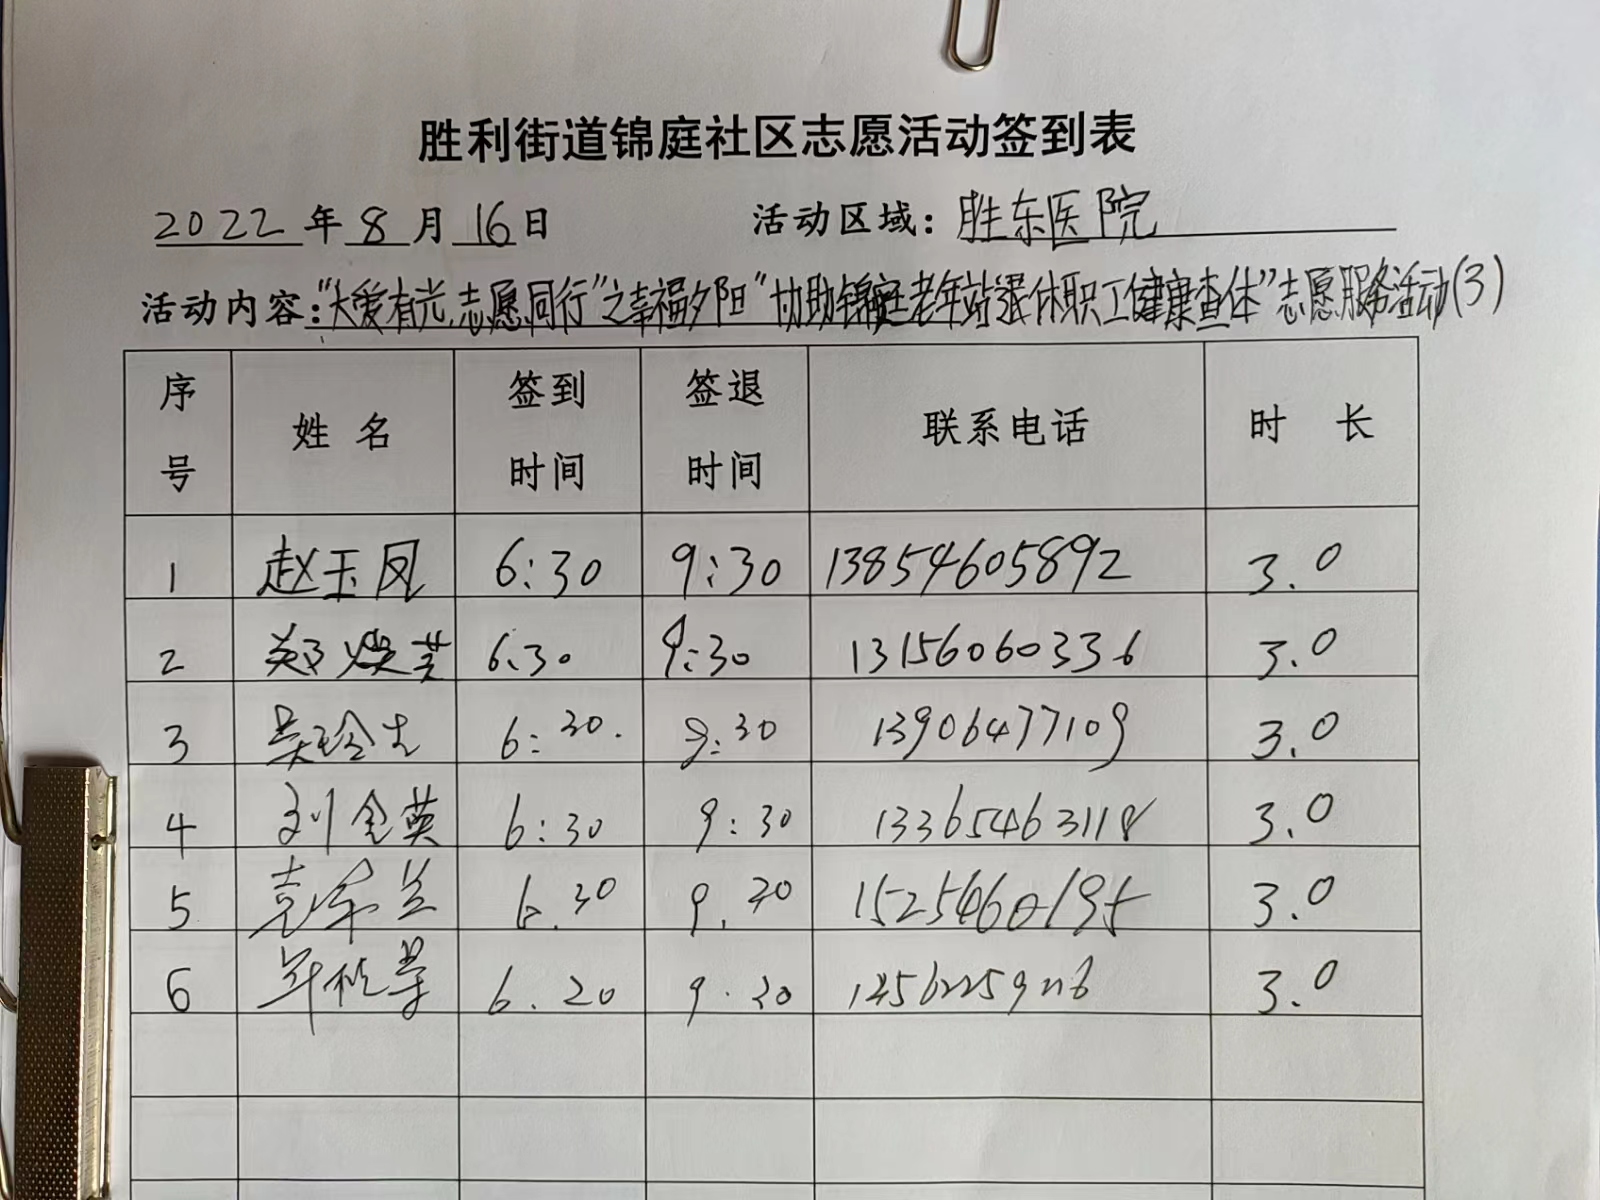 胜利街道锦庭社区志愿活动签到表
2022年8月16日 活动区域：胜东医院
活动内容："大爱有光,志愿同行"之幸福夕阳"协助锦庭老年站退休职工健康查体"志愿服务活动(3)
序号 姓名 签到时间 签退时间 联系电话 时 长
1 赵玉凤 6:30 9:30 13854605892 3.0
2 郑焕芝 6:30 9:30 13156060336 3.0
3 吴 6:30. 9:30 13906477109 3.0
4 刘金英 6:30 9:30 13365463118 3.0
5 6.30 9.30 15254660195 3.0
6 6.20 9.30 3.0